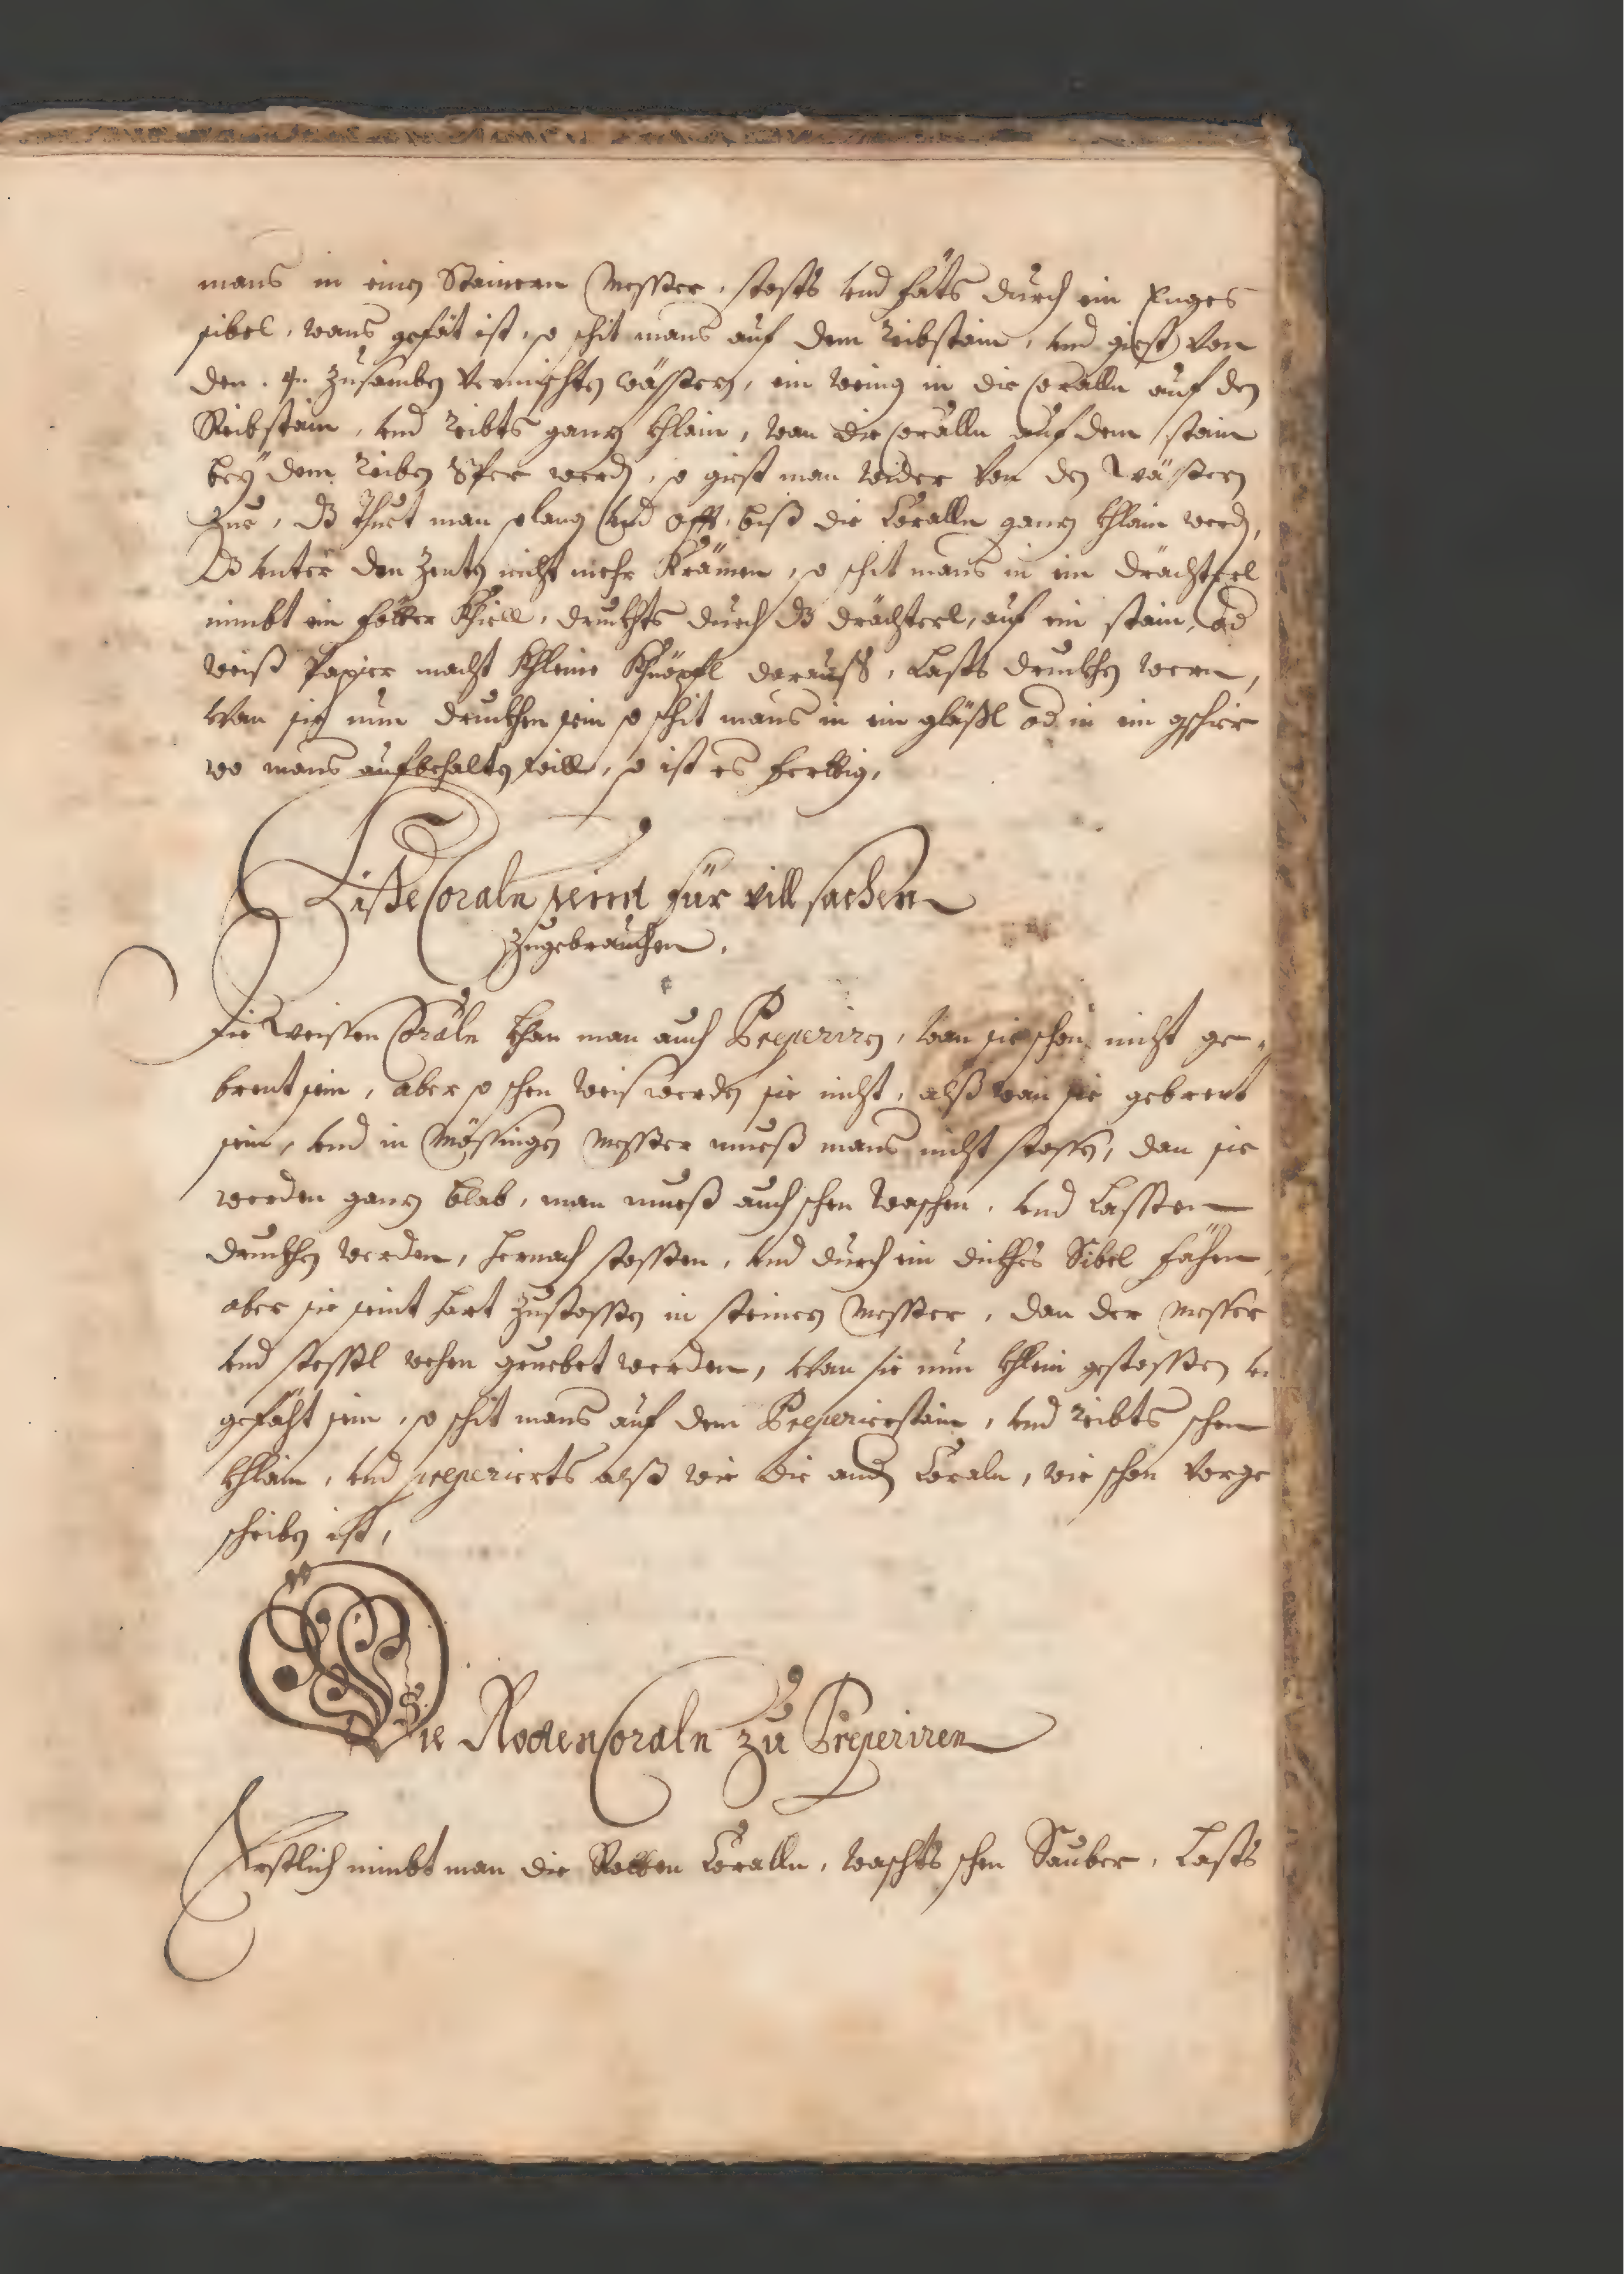 mans in einen Stainern Messzer, stosts und fäts durch ein Enges
sibel, wans gefät ist, so schit mans auf dem reibstain, und giest von
den 4n zusamben vermischten wässern, ein wenig in die Coralln auf den
Reibstain, und reibts gancz khlain, wan die Coralln auf dem stain
bey dem reiben 8fer werd, so giest man wider von den Wässern
zue, dz thuet man solang und offt, biss die Coralln gancz khlain werd,
dz unter den Zenten nicht mehr Krämen, so schit mans in ein drächterl
nimbt ein feder Khiell, druckhts durch dz drächterl, auf ein stain, od
weiß Papier macht khleine Khnöpfl darauß, Lasts druckhen wern,
wan sie nun druckhen sein so schit mans in ein gläßl od in ein gschier
wo mans aufbehalten will, so ist es Ferttig,
Diße Coraln seint für vill sachen
zugebrauchen.
Die Weissen Coraln khan man auch Preperiren, wan sie schon nicht ge-
brent sein, aber so schen weis werden sie nicht, alß wan sie gebrent
sein, und in Mössingen Messzer mueß mans nicht stossen, dan sie
werden gancz blab, man mueß auch schen waschen, und Lassen
druckhen werden, hernach stossen, und durch ein dickhes Sibel Fähen,
aber sie seint hart zustossen in steinern Messzer, dan der Messer
und stessl mehen gruebet werden, wan sie nun khlein gestossen u
gefäht sein, so schit mans auf dem Preperierstain, und reibts schen
khlain, und preperierts alß wie die andn Coraln, wie schon vorge
schriben ist,
Die Roden Coraln zu Preperiren
Erstlich nimbt man die Rotten Coralln, waschts schen Sauber, Lasts